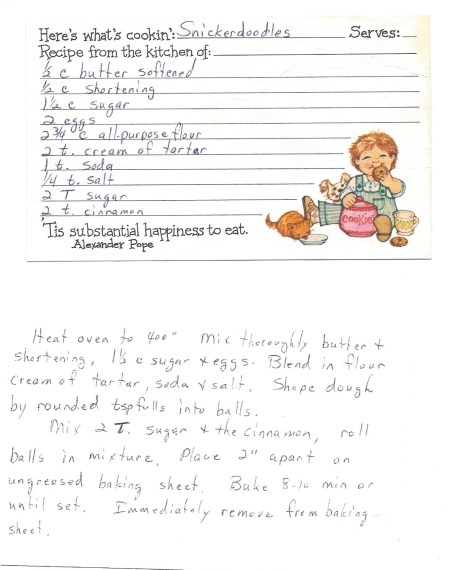 Here's what's cookin': Snickerdoodles Serves:
Recipe from the kitchen of:
½ c butter softened
½ c shortening
1½ c sugar
2 eggs
2¾ c all-purpose flour
2 t. cream of tartar
1 t. soda
¼ t. salt
2 T sugar
2 t. cinnamon
COOKIE
'Tis substantial happiness to eat.
Alexander Pope
Heat oven to 400° Mix thoroughly butter +
shortening, 1½ c sugar + eggs. Blend in flour
cream of tartar, soda + salt. Shape dough
by rounded tspfulls into balls.
Mix 2 T. sugar + the cinnamon, roll
balls in mixture. Place 2" apart on
ungreased baking sheet. Bake 8-10 min or
until set. Immediately remove from baking
sheet.